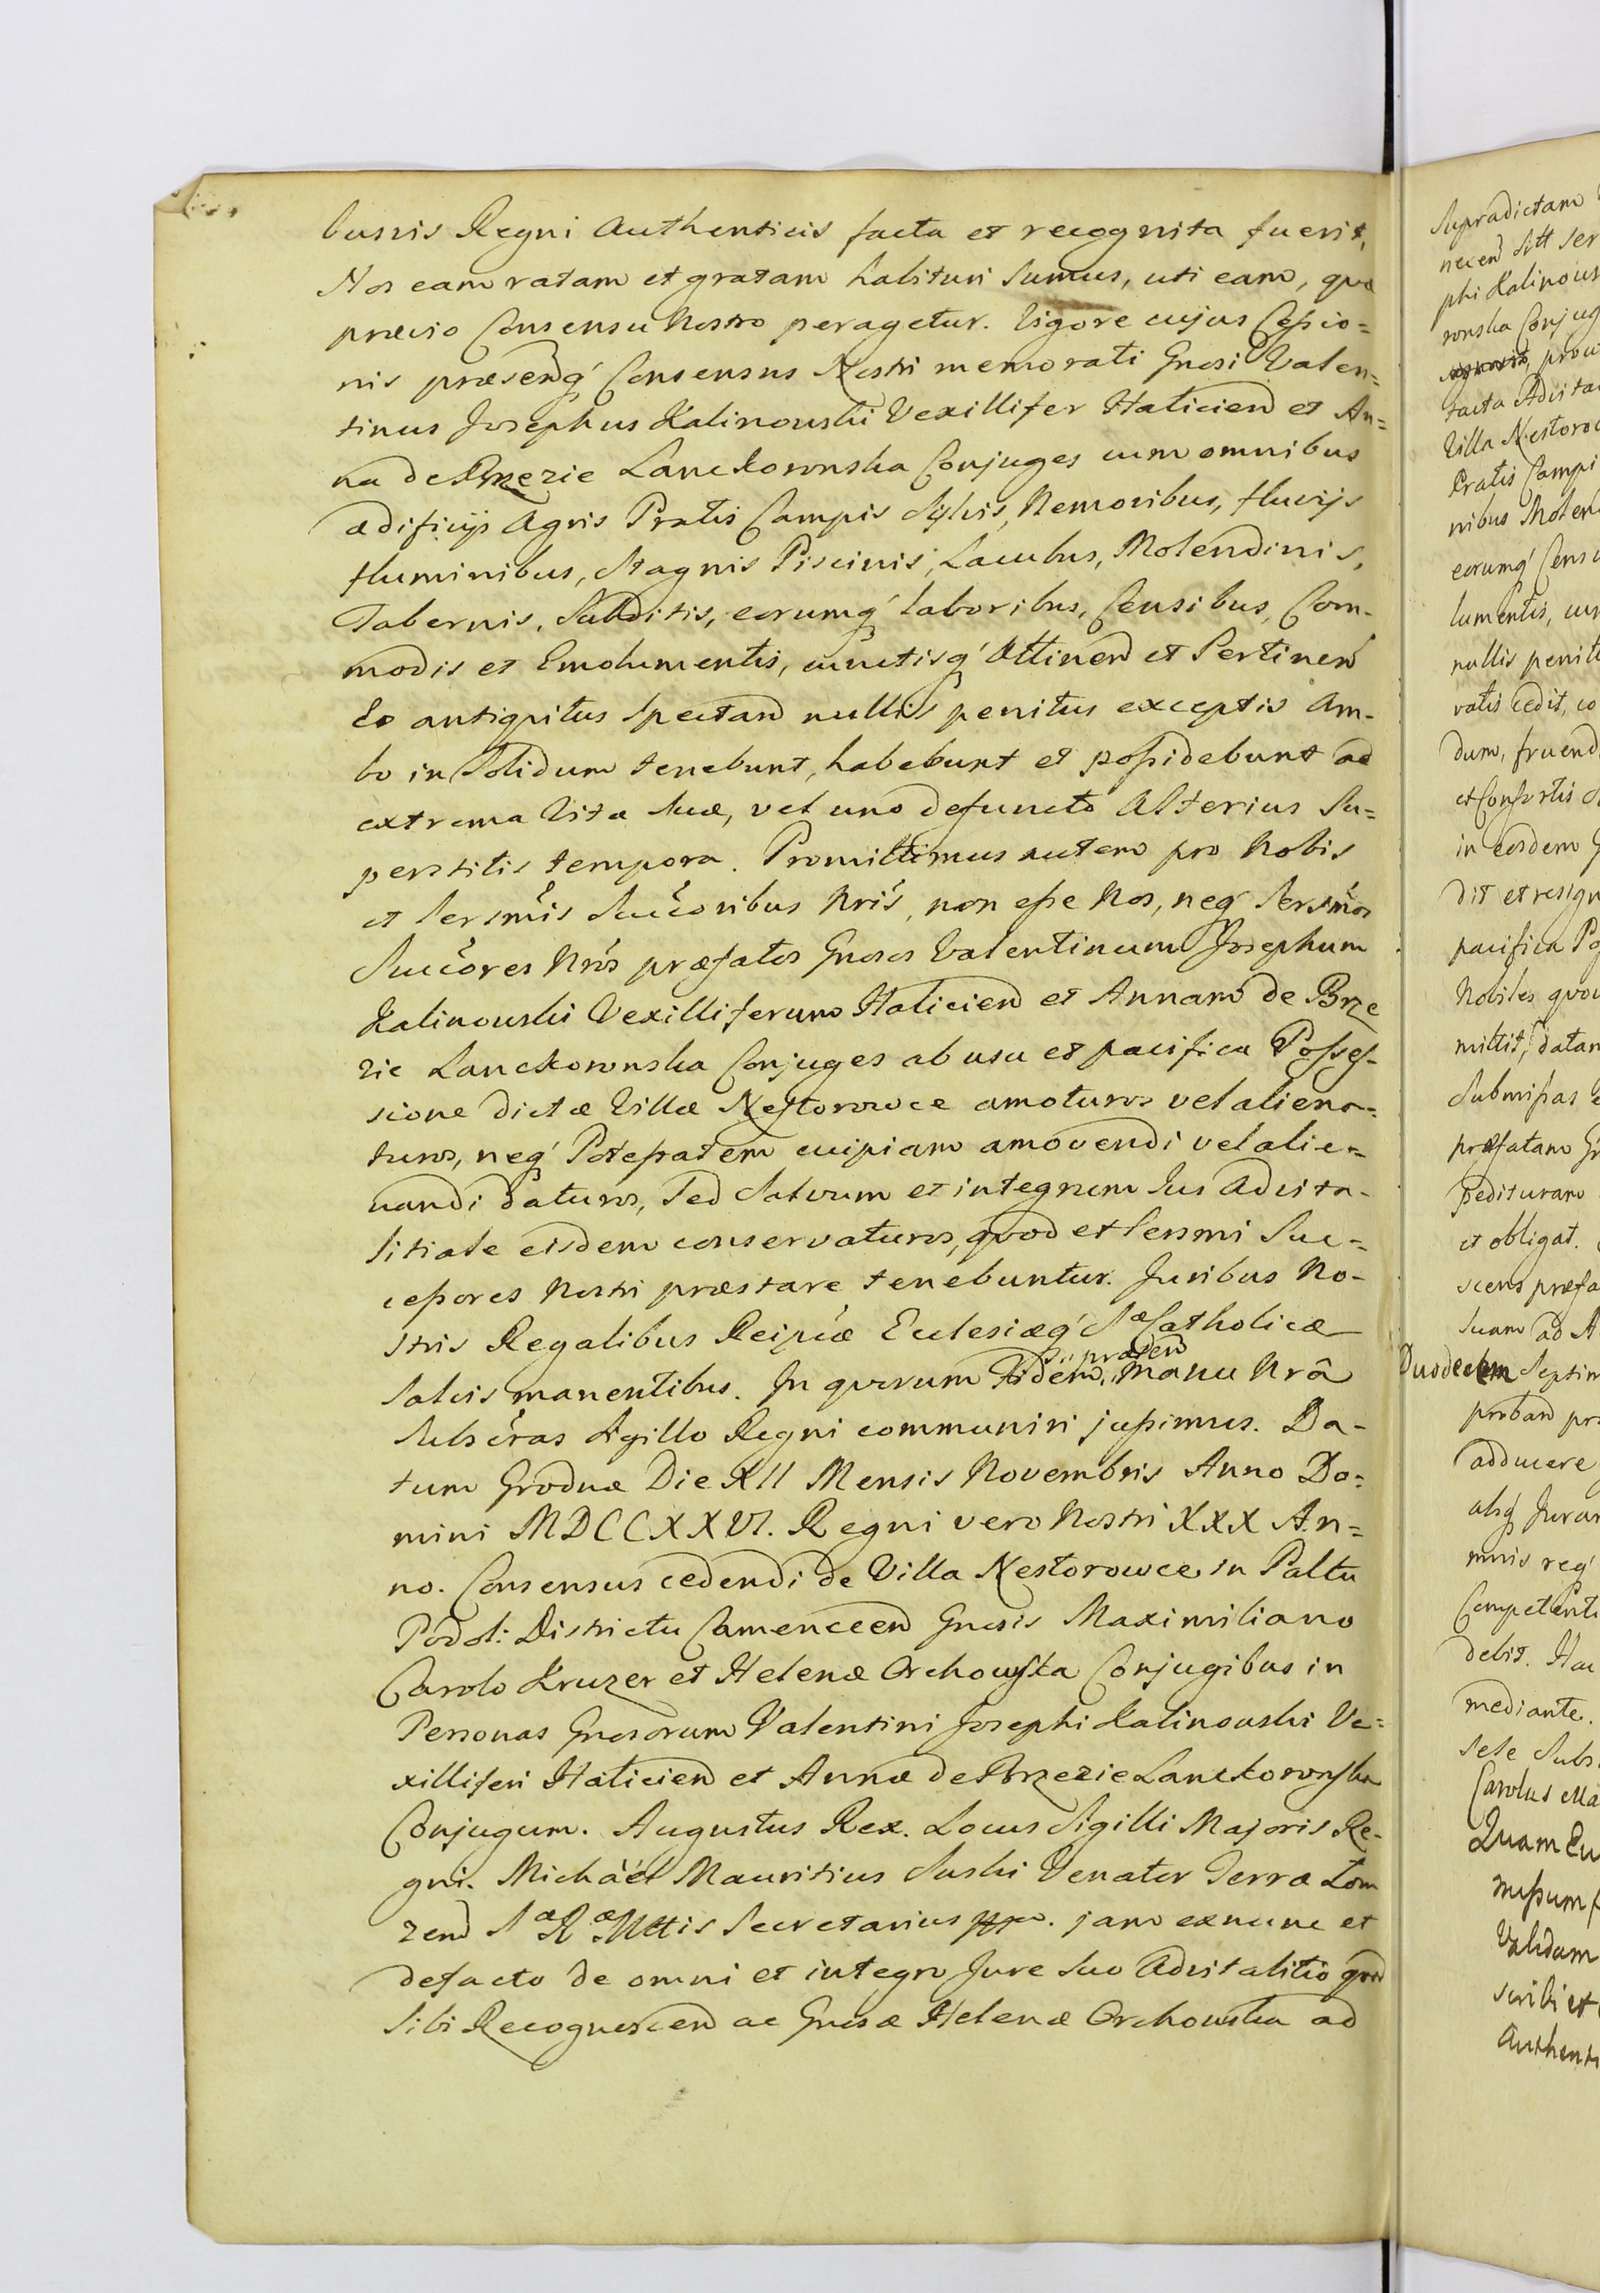 busvis Regni Authenticis facta et recognita fuerit,
Nos eam ratam et gratam habituri sumus, uti eam, quæ
prævio Consensu Nostro peragetur. Vigore cujus Cessio=
nis præsenq́ Consensus Nostri memorati Gnosi Valen=
tinus Josephus Kalinowski Vexillifer Halicien et An=
na de Brzezie Lanckoronska Conjuges cum omnibus
ædificijs Agris Pratis Campis Sylvis, Nemoribus, fluvijs
fluminibus, Stagnis Piscinis, Lacubus, Molendinis,
Tabernis, Subditis, eorumq́ laboribus, Censibus, Com-
modis et Emolumentis, cunctisq́ Attinen et Pertinen
Eo antiquitus Spectan nullis penitus exceptis Am-
bo in Solidum tenebunt, habebunt et possidebunt ad
extrema Vitæ suæ, vel uno defuncto Alterius Su=
perstitis tempora. Promittimus autem pro Nobis
et Sersmis Succoribus Nris, non esse Nos, neq́ Sersmos
Succores Nros præfatos Gnosos Valentinum Josephum
Kalinowski Vexilliferum Halicien et Annam de Brze
zie Lanckoronska Conjuges ab usu et pacifica Posses-
sione dictæ Villæ Nestorowce amoturos vel aliena=
turos, neq́ Potestatem cuipiam amovendi vel alie=
nandi daturos, Sed Salvum et integrum Jus Advita-
litiale eisdem conservaturos, quod et Sersmi Suc=
cessores Nostri præstare tenebuntur. Juribus No-
stris Regalibus Reipcæ Eclesiæq́ Sæ Catholicæ
Salvis manentibus. In quorum Fidem, præsen Manu Nrâ
Subscras Sigillo Regni communiri jussimus. Da-
tum Grodnæ Die XII Mensis Novembris Anno Do=
mini MDCCXXVI. Regni vero Nostri XXX An=
no. Consensus cedendi de Villa Nestorowce in Paltu
Podol: Districtu Camenecen Gnosis Maximiliano
Carolo Kruzer et Helenæ Orchowska Conjugibus in
Personas Gnosorum Valentini Josephi Kalinowski Ve=
xilliferi Halicien et Annæ de Brzezie Lanckoronska
Conjugum. Augustus Rex. Locus Sigilli Majoris Re-
gni. Michàél Mauritius Suski Venator Terræ Lom
zen Sæ Ræ Mttis Secretarius mpr. jam exnunc et
defacto de omni et integro Jure suo Advitalitio quod
Sibi Recognoscen ac Gnosæ Helenæ Orchowska ad
Supradictam
necen Sitt ser
phi Kalinows
ronska Conjug
prou
tacta Advita
Villa Nestorow
Pratis Campi
nibus Molen
eorumq́ Cens
lumentis, cun
nullis penit
vatis cedit, co
dum, fruend
et Consortis
in eosdem
dit et resign
pacifica Po
Nobiles quov
mittit, datam
Submissas
præfatam
pedituram
et obligat.
scens præfa
suam ad A
Duodecim Septim
proban pr
adducere
absq́ Jura
mnis req́
Competenti
debit. Hac
mediante.
sese Subs
Carolus Ma
Quam Eu
missum
Validam
scribi et
Authenti